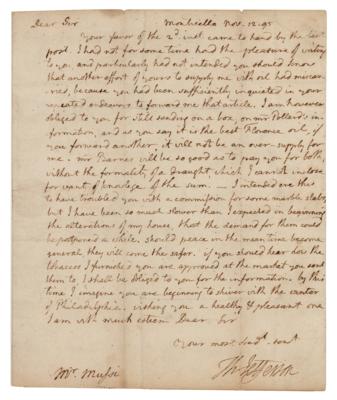 Dear Sir Monticello Nov. 12. 95
Your favor of the 2d. inst. came to hand by the last
post. I had not for some time had the pleasure of writing
to you, and particularly had not intended you should know
that another effort of yours to supply me with oil had miscar-
ried, because you had been sufficiently inquieted in your
repeated endeavors to forward me that article. I am however
obliged to you for still sending on a box, on mr Pollard's in-
formation, and as you say it is the best Florence oil, if
you forward another, it will not be an over-supply for
me. mr Barnes will be so good as to pay you for both,
without the formality of a draught, which I cannot inclose
for want of knowledge of the sum. — I intended ere this
to have troubled you with a commission for some marble slabs,
but I have been so much slower than I expected in beginning
the alterations of my house, that the demand for them could
be postponed a while. should peace in the mean time become
general they will come the safer. if you should hear how the
tobaccos I furnished you are approved at the market you sent
them to, I shall be obliged to you for the information. by this
time I imagine you are beginning to shiver with the winter
of Philadelphia. wishing you a healthy & pleasant one
I am with much esteem Dear Sir
Your most obedt. servt
Th: Jefferson
Mr. Mussi